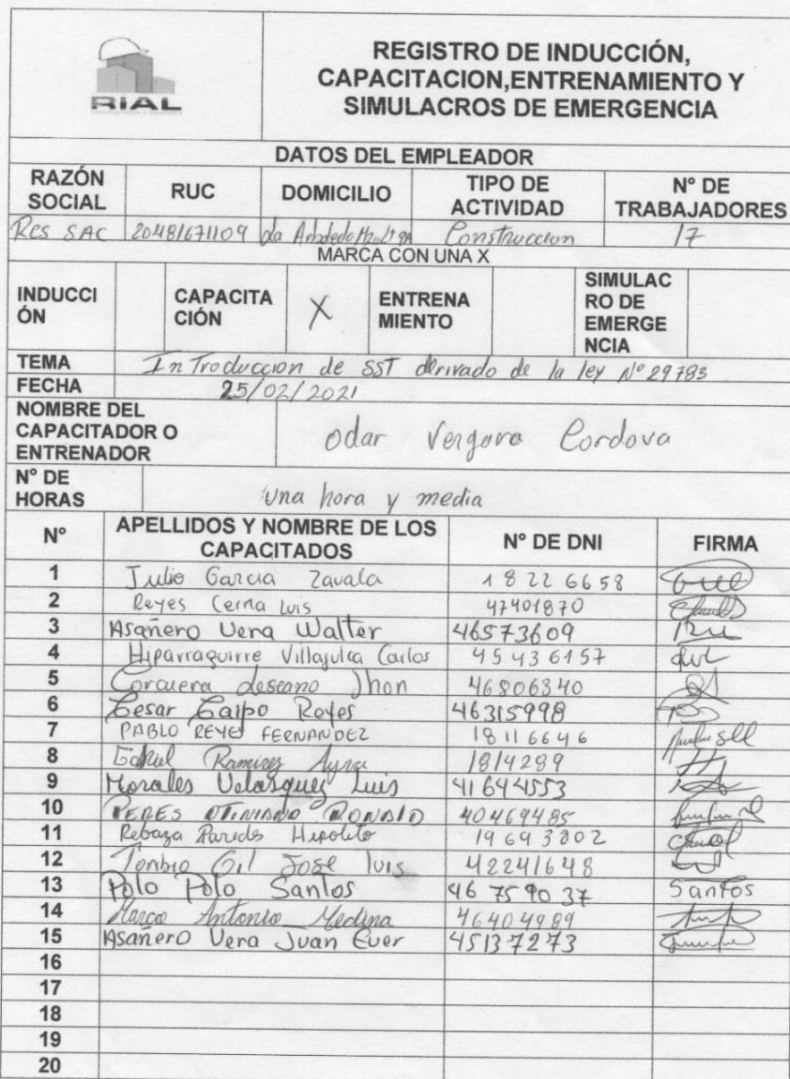 RIAL
REGISTRO DE INDUCCIÓN,
CAPACITACION,ENTRENAMIENTO Y
SIMULACROS DE EMERGENCIA
DATOS DEL EMPLEADOR
RAZÓN SOCIAL RUC DOMICILIO TIPO DE ACTIVIDAD N° DE TRABAJADORES
Res SAC 20481671109 La Construccion 17
MARCA CON UNA X
INDUCCI ÓN CAPACITA CIÓN X ENTRENA MIENTO SIMULAC RO DE EMERGE NCIA
TEMA InTroduccion de SST derivado de la ley N° 29783
FECHA 25/02/2021
NOMBRE DEL CAPACITADOR O ENTRENADOR odar Vergara Cordova
N° DE HORAS una hora y media
N° APELLIDOS Y NOMBRE DE LOS CAPACITADOS N° DE DNI FIRMA
1 Julio Garcia Zavala 18226658
2 Reyes Cerna Luis 47401870
3 Asañero Vera Walter 46573609
4 Hiparraguirre Villajulca Carlos 45436157
5 Corcuera deseano Jhon 46806340
6 Cesar Carpo Reyes 46315998
7 PABLO REYES FERNANDEZ 18116646
8 Gabriel Ramirez 1814289
9 Morales Velasquez Luis 41644553
10 PERES OTINIANO RONALD 40469485
11 Rebaza Paredes Hipolito 19693802
12 Toribio Gil Jose luis 42241648
13 Polo Polo Santos 46 75 90 37 Santos
14 Marco Antonio Medina 46404989
15 Asañero Vera Juan Ever 45137273
16
17
18
19
20